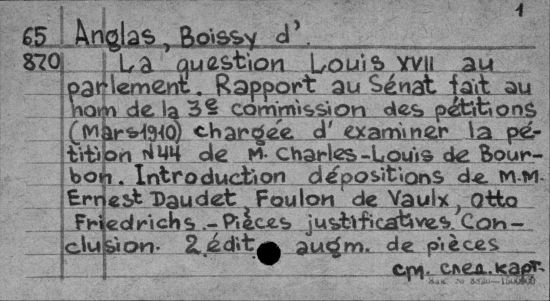 1
65 Anglas, Boissy d'.
820 La question Louis XVII au
parlement. Rapport au Sénat fait au
nom de la 3e commission des pétitions
(Mars 1910) chargée d'examiner la pé-
tition N44 de M. Charles-Louis de Bour-
bon. Introduction dépositions de M.M.
Ernest Daudet, Foulon de Vaulx, Otto
Friedrichs.-Pièces justificatives, Con-
clusion. 2.édit. augm. de pièces
см. след. карт.